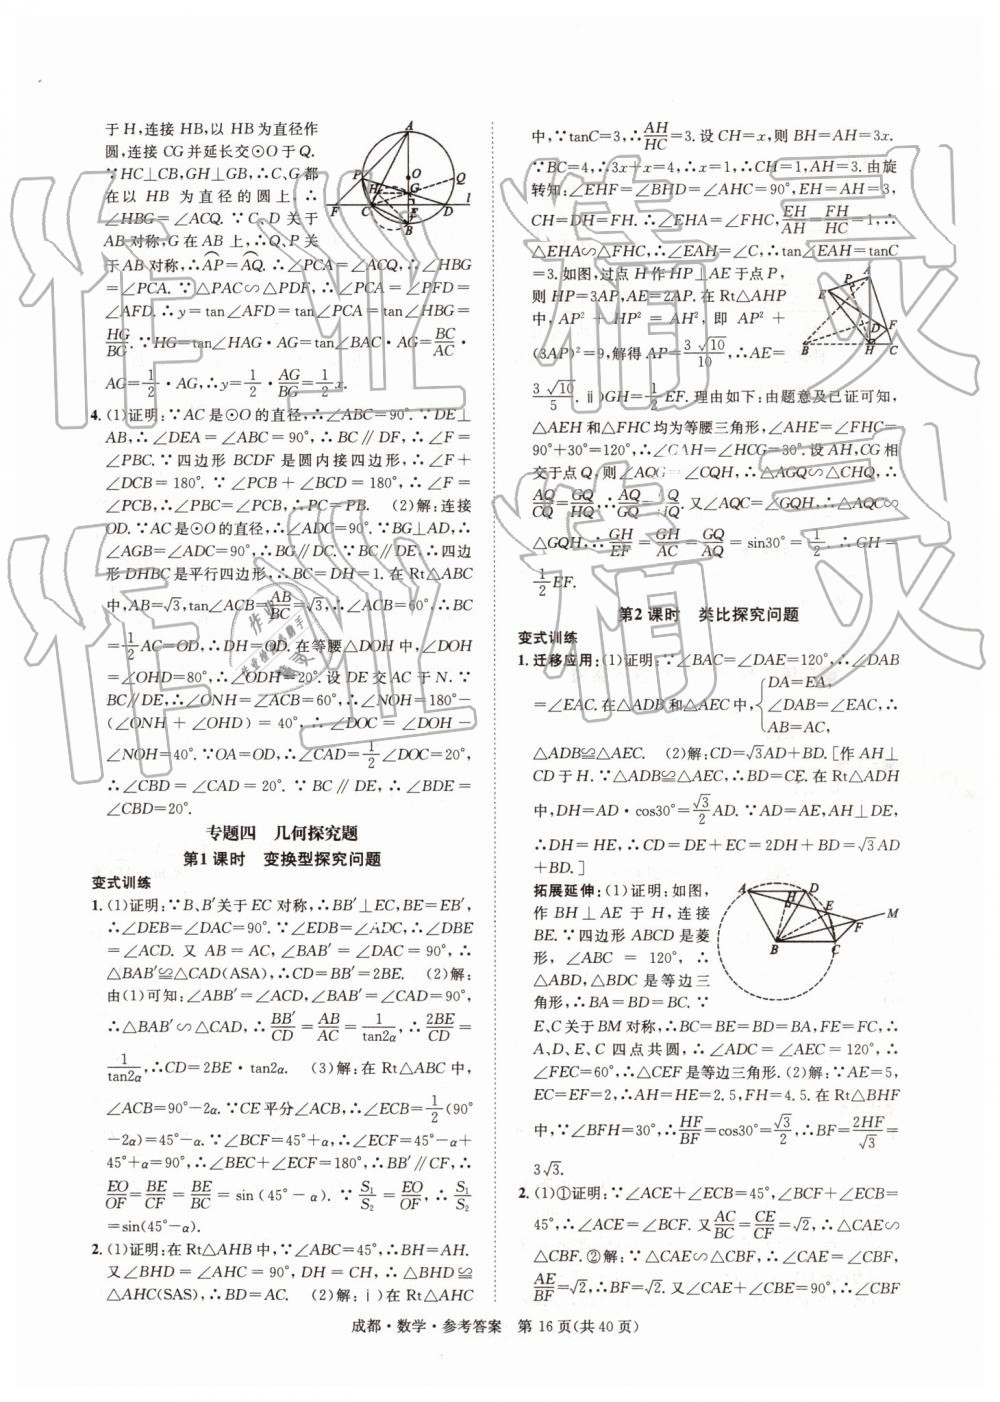 于H,连接HB,以HB为直径作
圆,连接CG并延长交⊙O于Q.
∵HC⊥CB,GH⊥GB,∴C、G都
在以HB为直径的圆上,∴
∠HBG=∠ACQ.∵C、D关于
AB对称,G在AB上,∴Q、P关
于AB对称,∴AP⌒=AQ⌒.∴∠PCA=∠ACQ,∴∠HBG
=∠PCA.∵△PAC∽△PDF,∴∠PCA=∠PFD=
∠AFD.∴y=tan∠AFD=tan∠PCA=tan∠HBG=
HG/BG.∵HG=tan∠HAG·AG=tan∠BAC·AG=BC/AC·
AG=1/2·AG,∴y=1/2·AG/BG=1/2x.
4.(1)证明:∵AC是⊙O的直径,∴∠ABC=90°.∵DE⊥
AB,∴∠DEA=∠ABC=90°,∴BC∥DF,∴∠F=
∠PBC.∵四边形BCDF是圆内接四边形,∴∠F+
∠DCB=180°.∵∠PCB+∠BCD=180°,∴∠F=
∠PCB,∴∠PBC=∠PCB,∴PC=PB. (2)解:连接
OD.∵AC是⊙O的直径,∴∠ADC=90°.∵BG⊥AD,∴
∠AGB=∠ADC=90°,∴BG∥DC.∵BC∥DE,∴四边
形DHBC是平行四边形,∴BC=DH=1.在Rt△ABC
中,AB=√3,tan∠ACB=AB/BC=√3,∴∠ACB=60°.∴BC
=1/2AC=OD,∴DH=OD.在等腰△DOH中,∠DOH
=∠OHD=80°,∴∠ODH=20°.设DE交AC于N.∵
BC∥DE,∴∠ONH=∠ACB=60°,∴∠NOH=180°-
(∠ONH+∠OHD)=40°,∴∠DOC=∠DOH-
∠NOH=40°.∵OA=OD,∴∠CAD=1/2∠DOC=20°,
∴∠CBD=∠CAD=20°.∵BC∥DE,∴∠BDE=
∠CBD=20°.
专题四 几何探究题
第1课时 变换型探究问题
变式训练
1.(1)证明:∵B、B′关于EC对称,∴BB′⊥EC,BE=EB′,
∴∠DEB=∠DAC=90°.∵∠EDB=∠ADC,∴∠DBE
=∠ACD.又AB=AC,∠BAB′=∠DAC=90°,∴
△BAB′≌△CAD(ASA),∴CD=BB′=2BE. (2)解:
由(1)可知:∠ABB′=∠ACD,∠BAB′=∠CAD=90°,
∴△BAB′∽△CAD,∴BB′/CD=AB/AC=1/tan2α,∴2BE/CD=
1/tan2α,∴CD=2BE·tan2α. (3)解:在Rt△ABC中,
∠ACB=90°-2α.∵CE平分∠ACB,∴∠ECB=1/2(90°
-2α)=45°-α.∵∠BCF=45°+α,∴∠ECF=45°-α+
45°+α=90°,∴∠BEC+∠ECF=180°,∴BB′∥CF,∴
EO/OF=BE/CF=BE/BC=sin(45°-α).∵S₁/S₂=EO/OF,∴S₁/S₂
=sin(45°-α).
2.(1)证明:在Rt△AHB中,∵∠ABC=45°,∴BH=AH.
又∠BHD=∠AHC=90°,DH=CH,∴△BHD≌
△AHC(SAS),∴BD=AC. (2)解:ⅰ)在Rt△AHC
中,∵tanC=3,∴AH/HC=3.设CH=x,则BH=AH=3x.
∵BC=4,∴3x+x=4,∴x=1,∴CH=1,AH=3.由旋
转知:∠EHF=∠BHD=∠AHC=90°,EH=AH=3,
CH=DH=FH.∴∠EHA=∠FHC,EH/AH=FH/HC=1,∴
△EHA∽△FHC,∴∠EAH=∠C,∴tan∠EAH=tanC
=3.如图,过点H作HP⊥AE于点P,
则HP=3AP,AE=2AP.在Rt△AHP
中,AP²+HP²=AH²,即AP²+
(3AP)²=9,解得AP=3√10/10,∴AE=
3√10/5.ⅱ)GH=1/2EF.理由如下:由题意及已证可知,
△AEH和△FHC均为等腰三角形,∠AHE=∠FHC=
90°+30°=120°,∴∠GAH=∠HCG=30°.设AH,CG相
交于点Q,则∠AQG=∠CQH,∴△AGQ∽△CHQ,∴
AQ/CQ=GQ/HQ,∴AQ/GQ=CQ/HQ.又∠AQC=∠GQH,∴△AQC∽
△GQH,∴GH/EF=GH/AC=GQ/AQ=sin30°=1/2.∴GH=
1/2EF.
第2课时 类比探究问题
变式训练
1.迁移应用:(1)证明:∵∠BAC=∠DAE=120°,∴∠DAB
=∠EAC.在△ADB和△AEC中,{DA=EA, ∠DAB=∠EAC, AB=AC,∴
△ADB≌△AEC. (2)解:CD=√3AD+BD.[作AH⊥
CD于H.∵△ADB≌△AEC,∴BD=CE.在Rt△ADH
中,DH=AD·cos30°=√3/2AD.∵AD=AE,AH⊥DE,
∴DH=HE,∴CD=DE+EC=2DH+BD=√3AD
+BD.]
拓展延伸:(1)证明:如图,
作BH⊥AE于H,连接
BE.∵四边形ABCD是菱
形,∠ABC=120°,∴
△ABD,△BDC是等边三
角形,∴BA=BD=BC.∵
E、C关于BM对称,∴BC=BE=BD=BA,FE=FC,∴
A、D、E、C四点共圆,∴∠ADC=∠AEC=120°,∴
∠FEC=60°,∴△CEF是等边三角形.(2)解:∵AE=5,
EC=EF=2,∴AH=HE=2.5,FH=4.5.在Rt△BHF
中,∵∠BFH=30°,∴HF/BF=cos30°=√3/2,∴BF=2HF/√3=
3√3.
2.(1)①证明:∵∠ACE+∠ECB=45°,∠BCF+∠ECB=
45°,∴∠ACE=∠BCF.又AC/BC=CE/CF=√2,∴△CAE∽
△CBF.②解:∵△CAE∽△CBF,∴∠CAE=∠CBF,
AE/BF=√2,∴BF=√2.又∠CAE+∠CBE=90°,∴∠CBF
成都·数学·参考答案 第16页(共40页)